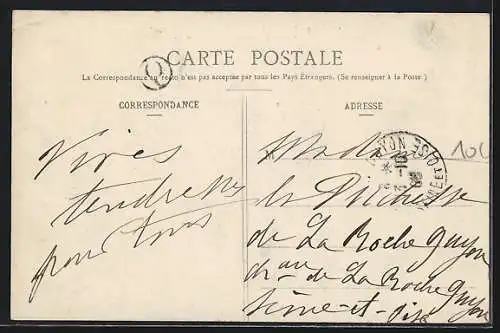 CARTE POSTALE
La Correspondance au recto n'est pas acceptée par tous les Pays Étrangers. (Se renseigner à la Poste.)
CORRESPONDANCE
ADRESSE
Vives
tendresses
pour tous
Madame
la Duchesse
de La Roche Guyon
de La Roche Guyon
Seine-et-Oise